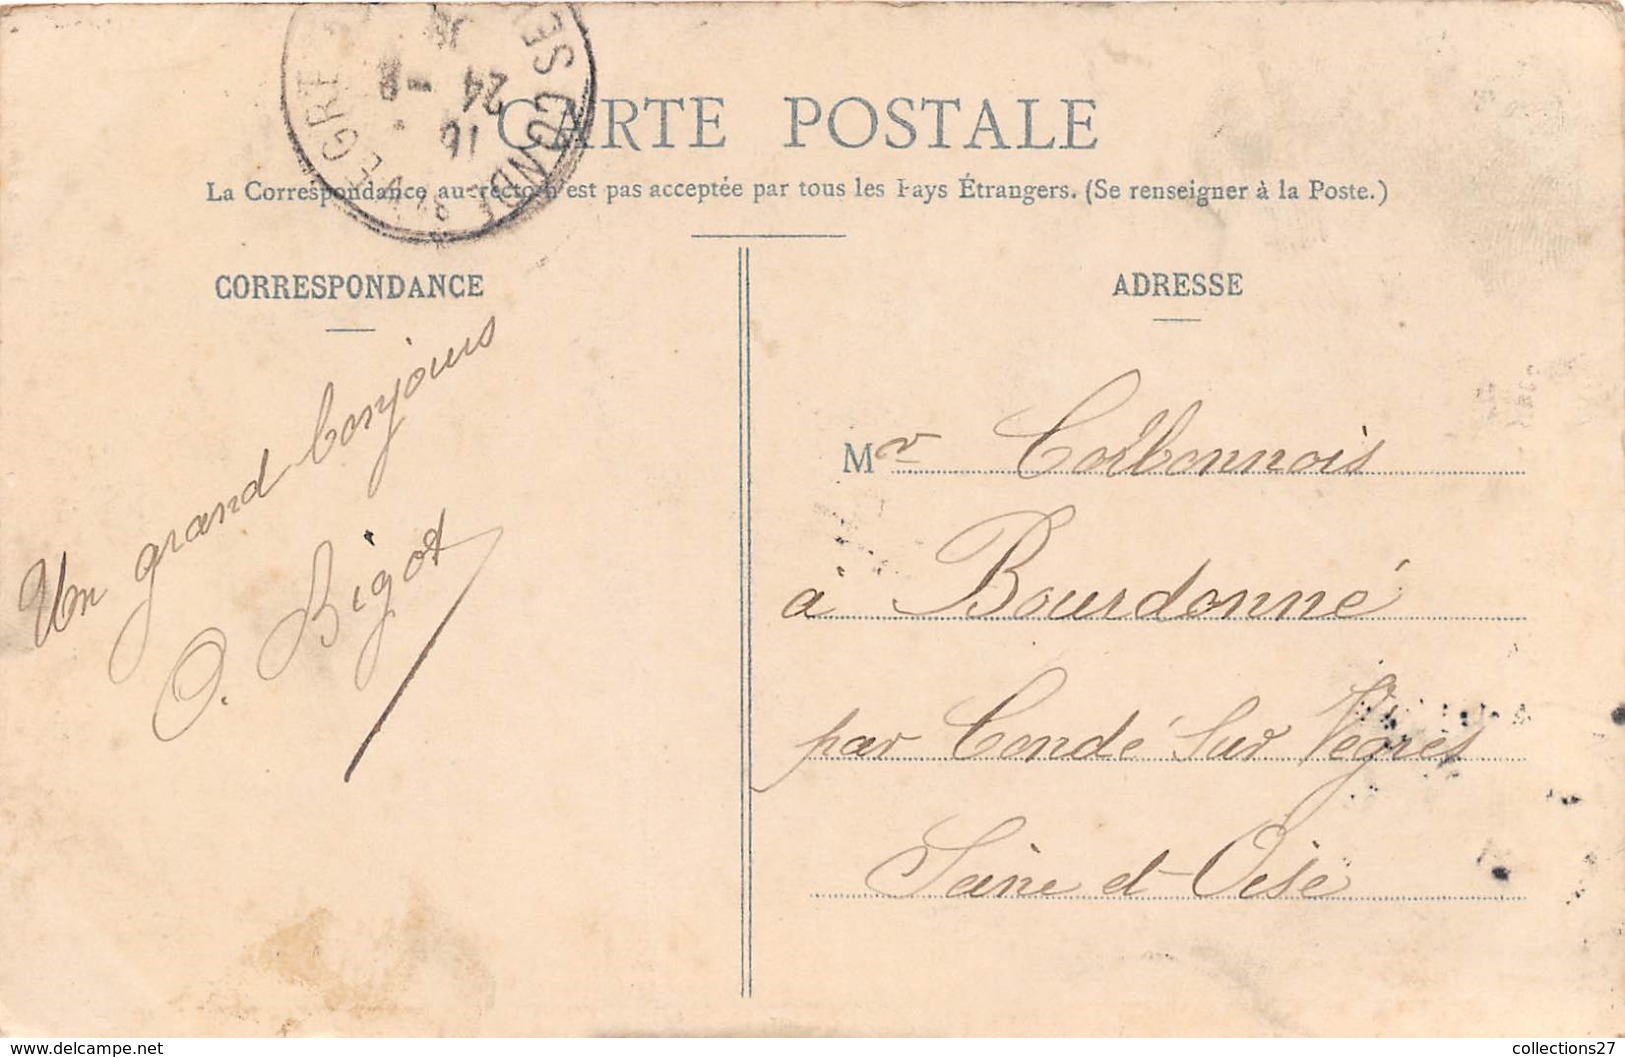 CARTE POSTALE
La Correspondance au recto n'est pas acceptée par tous les Pays Étrangers. (Se renseigner à la Poste.)
CORRESPONDANCE
Un grand bonjours
O. Bigot
ADRESSE
Mr Corbonnois
à Bourdonné
par Condé Sur Vègres
Seine et-Oise
16
24 -8
www.delcampe.net
collections27